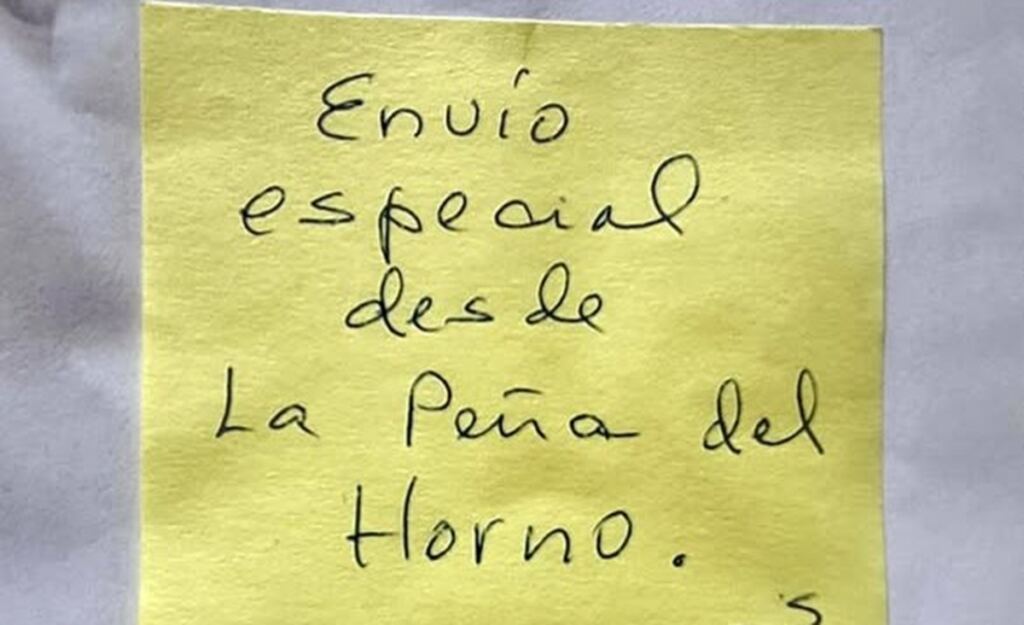 Envío
especial
desde
La Peña del
Horno.
s